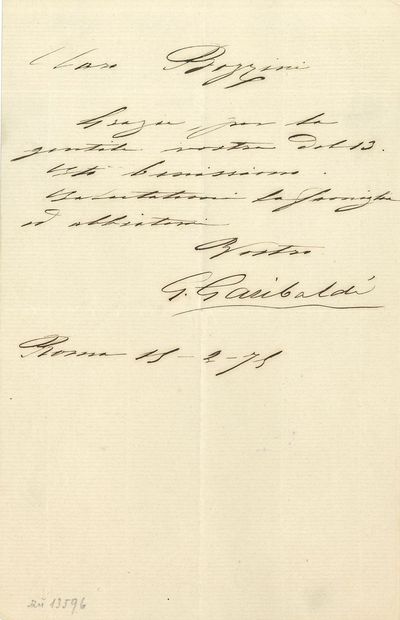 Caro Bozzini
Grazie per la
gentile vostra del 13.
Sto benissimo.
Salutatemi la famiglia
ed abbiatemi
Vostro
G. Garibaldi
Roma 15-2-75
13596